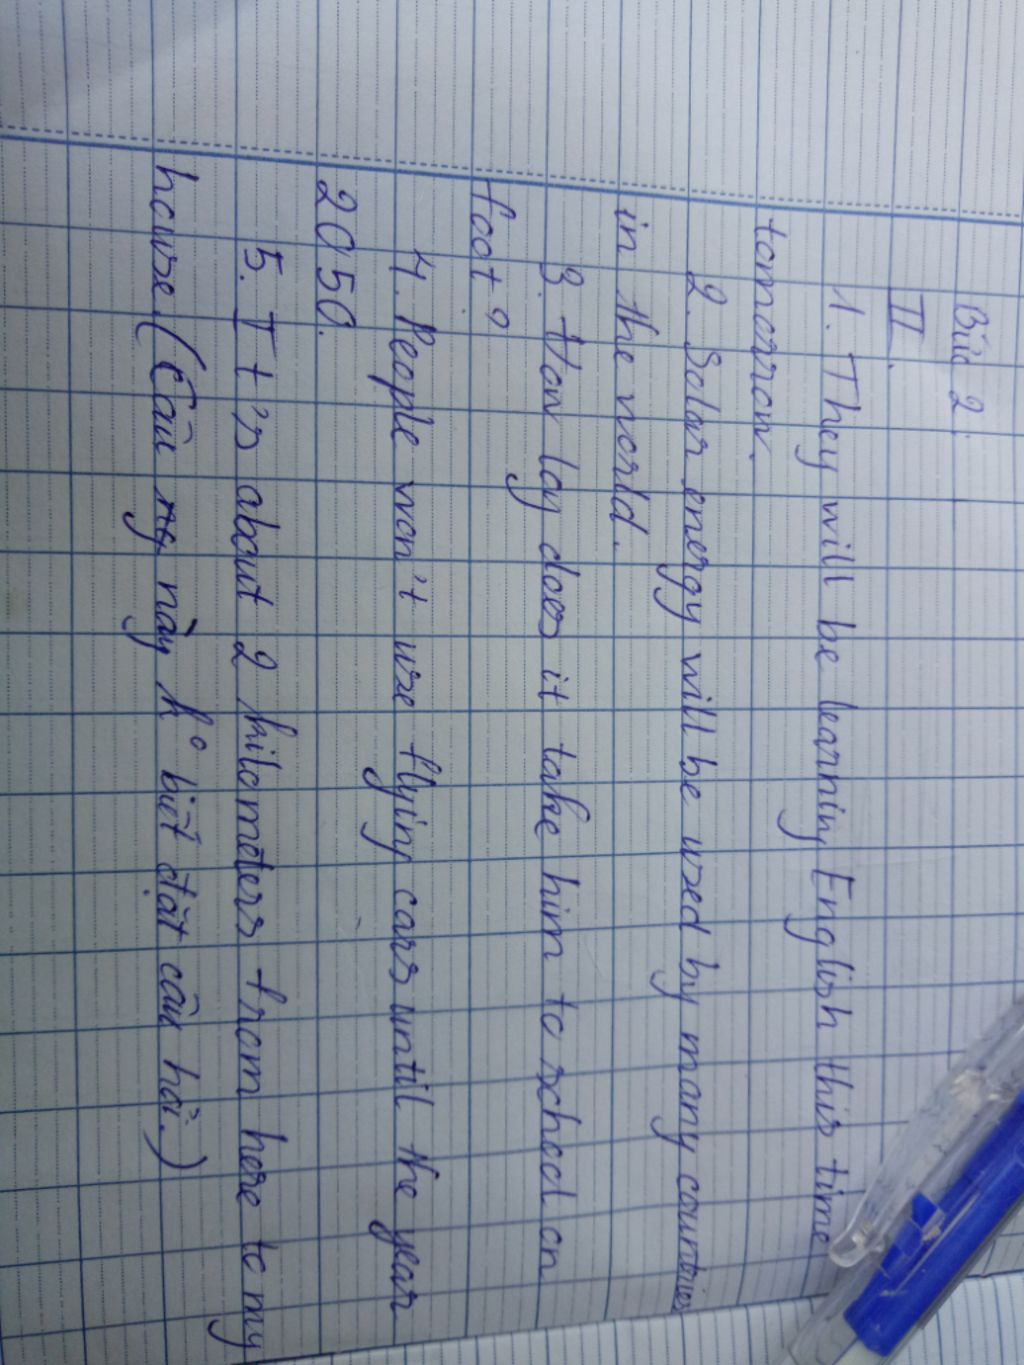 Bài 2.
II.
1. They will be learning English this time
tomorrow.
2. Solar energy will be used by many countries
in the world.
3. How log does it take him to school on
foot?
4. People won't use flying cars until the year
2050.
5. It's about 2 kilometers from here to my
house. (Câu này ko biết đặt câu hỏi.)